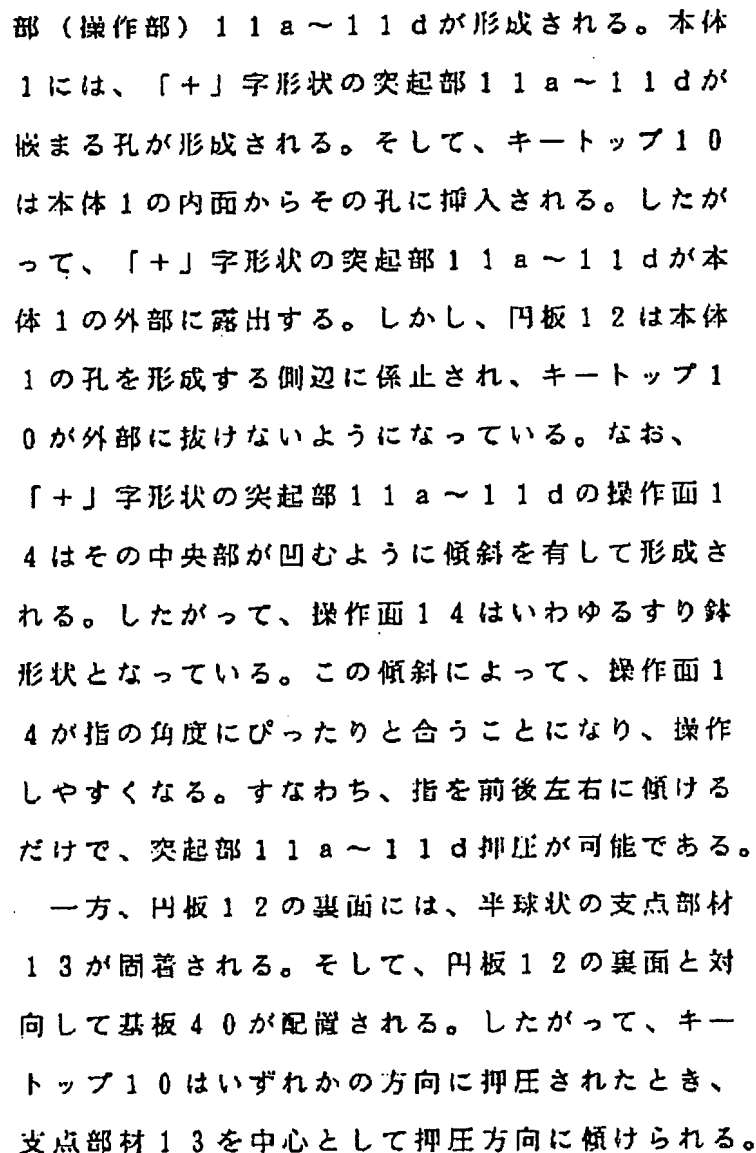 部（操作部）１１ａ～１１ｄが形成される。本体
１には、「＋」字形状の突起部１１ａ～１１ｄが
嵌まる孔が形成される。そして、キートップ１０
は本体１の内面からその孔に挿入される。したが
って、「＋」字形状の突起部１１ａ～１１ｄが本
体１の外部に露出する。しかし、円板１２は本体
１の孔を形成する側辺に係止され、キートップ１
０が外部に抜けないようになっている。なお、
「＋」字形状の突起部１１ａ～１１ｄの操作面１
４はその中央部が凹むように傾斜を有して形成さ
れる。したがって、操作面１４はいわゆるすり鉢
形状となっている。この傾斜によって、操作面１
４が指の角度にぴったりと合うことになり、操作
しやすくなる。すなわち、指を前後左右に傾ける
だけで、突起部１１ａ～１１ｄ押圧が可能である。
一方、円板１２の裏面には、半球状の支点部材
１３が固着される。そして、円板１２の裏面と対
向して基板４０が配置される。したがって、キー
トップ１０はいずれかの方向に押圧されたとき、
支点部材１３を中心として押圧方向に傾けられる。